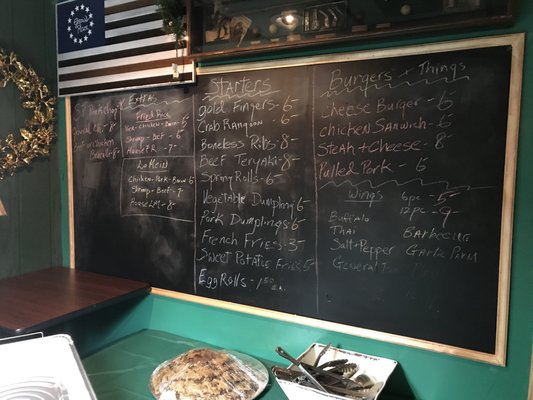 Extras
Fried Rice
Pork-Chicken-
Shrimp - Beef - 6
House F.R. - 7
Lo Mein
Chicken-Pork-
Shrimp - Beef - 7
House L.M. - 8
Starters
Gold Fingers - 6-
Crab Rangoon - 6-
Boneless Ribs - 8-
Beef Teryaki - 8-
Spring Rolls - 6-
Vegetable Dumpling 6-
Pork Dumplings - 6-
French Fries - 3-
Sweet Potatoe Fries 5-
Egg Rolls - 1.50 ea.
Burgers + Things
Cheese Burger - 6
Chicken Sandwich - 6
Steak + Cheese - 8
Pulled Pork 6
Wings 6pc - 5-
12pc - 9-
Buffalo
Thai
Salt + Pepper
General T
Barbecue
Garlic